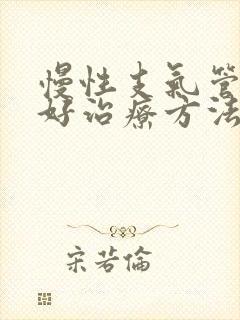 慢性支氣管
好治療方法
宋若倫